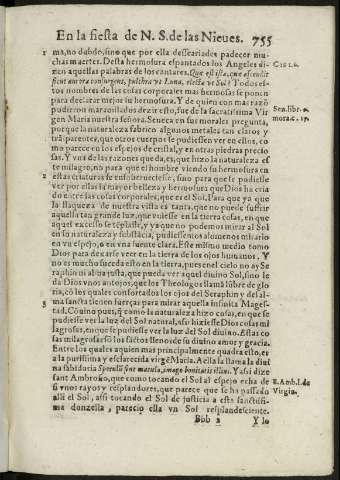 En la fiesta de N. S. de las Nieues. 755
1 ma, no dubdo, sino que por ella desseariades padecer mu-
chas muertes. Desta hermosura espantados los Angeles di-
zen aquellas palabras de los cantares. Que est ista, quæ ascendit Cãt. 6.
sicut aurora consurgens, pulchra vt Luna, electa vt Sol? Todos es-
tos nombres de las cosas corporales mas hermosas se ponen
para declarar mejor su hermosura. Y de quien con mas razõ
pudieron marauillados dezir esto, fue de la sacratissima Vir
gen Maria nuestra señora. Seneca en sus morales pregunta, Sen. lib. 1.
porque la naturaleza fabrico algunos metales tan claros y
trãsparentes, que otros cuerpos se pudiessen ver en estos, co
mo parece en los espejos de cristal, y en otras piedras precio
sas. Y vna de las razones que da, es, que hizo la naturaleza es
te milagro, no para que el hombre viendo su hermosura en
2 estas criaturas se ensoberueciesse, sino para que se pudiesse
ver por ellas la mayor belleza y hermosura que Dios ha cria
do entre las cosas corporales, que es el Sol. Para que ya que
la flaqueza de nuestra vista es tanta, que no puede sufrir
aquella tan grande luz, que vuiesse en la tierra cosas, en que
aquel excesso se téplasse, y ya que no podemos mirar al Sol
en su naturaleza y substãcia, pudiessemos alomenos mirarlo
en vn espejo, o en vna fuente clara. Este mismo medio tomo
Dios para dexarse ver en la tierra de los ojos humanos. Y
no es mucho suceda esto en la tierra, pues en el cielo no ay Se
raphin ni alma justa, que pueda ver aquel diuino Sol, sino le
da Dios vnos antojos, que los Theologos llamã lũbre de glo
ria, cõ los quales confortados los ojos del Seraphin y del al-
3 ma sancta tienen fuerças para mirar aquella infinita Mages-
tad. Cõuino pues, q̃ como la naturaleza hizo cosas, en que se
pudiesse ver la luz del Sol natural, assi hiziesse Dios cosas mi
lagrosas, en que se pudiesse ver la luz del Sol diuino. Estas co
sas milagrosas sõ los sãctos llenos de su diuino amor y gracia.
Entre los quales a quien mas principalmente quadra esto, es
a la purissima y esclarecida virgẽ Maria. A ella llama la diui
na sabiduria Speculũ sine macula, imago bonitatis illius. Y assi dize
sant Ambrosio, que como tocando el Sol al espejo echa de S. Amb. l. de
si vnos rayos y resplandores, que parece que se ha passado Virgin.
alli el Sol, assi tocando el Sol de justicia a esta sanctissi-
ma donzella, parecio ella vn Sol resplandesciente.
Bbb 2 Y lo